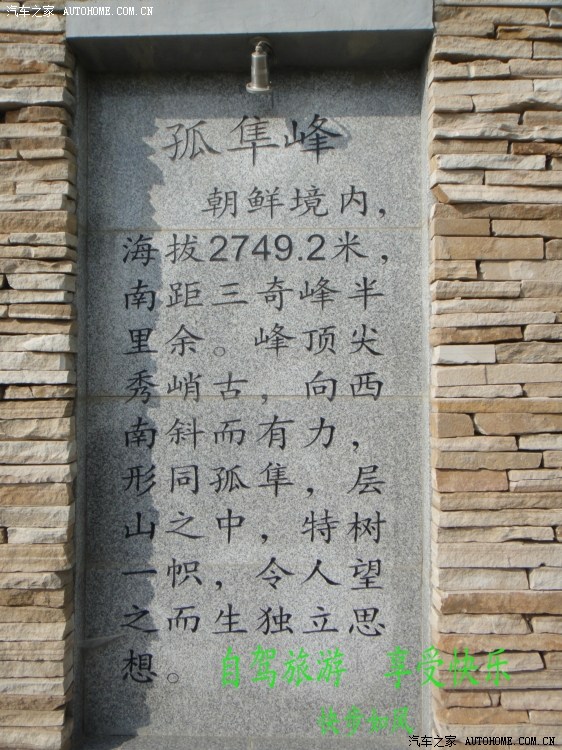 汽车之家 AUTOHOME.COM.CN
孤隼峰
朝鲜境内，
海拔2749.2米，
南距三奇峰半
里余。峰顶尖
秀峭古，向西
南斜而有力，
形同孤隼，层
山之中，特树
一帜，令人望
之而生独立思
想。
自驾旅游 享受快乐
快步如风
汽车之家 AUTOHOME.COM.CN